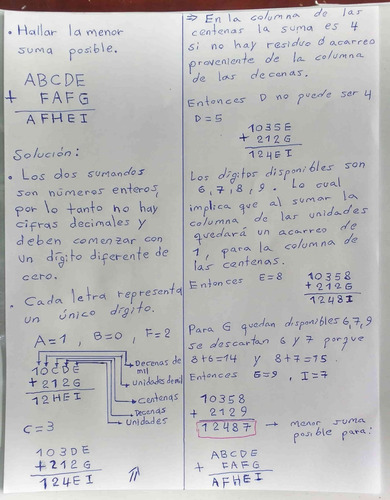 • Hallar la menor
suma posible.
ABCDE
+ FAFG
AFHEI
Solución:
• Los dos sumandos
son números enteros,
por lo tanto no hay
cifras decimales y
deben comenzar con
un dígito diferente de
cero.
• Cada letra representa
un único dígito.
A=1, B=0, F=2
10CDE
+212G
12HEI
Decenas de
mil
Unidades de mil
Centenas
Decenas
Unidades
C=3
103DE
+212G
124EI
⇒ En la columna de las
centenas la suma es 4
si no hay residuo o acarreo
proveniente de la columna
de las decenas.
Entonces D no puede ser 4
D=5
1035E
+212G
124EI
Los dígitos disponibles son
6, 7, 8, 9. Lo cual
implica que al sumar la
columna de las unidades
quedará un acarreo de
1, para la columna de
las centenas.
Entonces E=8
10358
+212G
1248I
Para G quedan disponibles 6, 7, 9
se descartan 6 y 7 porque
8+6=14 y 8+7=15.
Entonces G=9, I=7
10358
+ 2129
12487 → menor suma
posible para:
ABCDE
+ FAFG
AFHEI